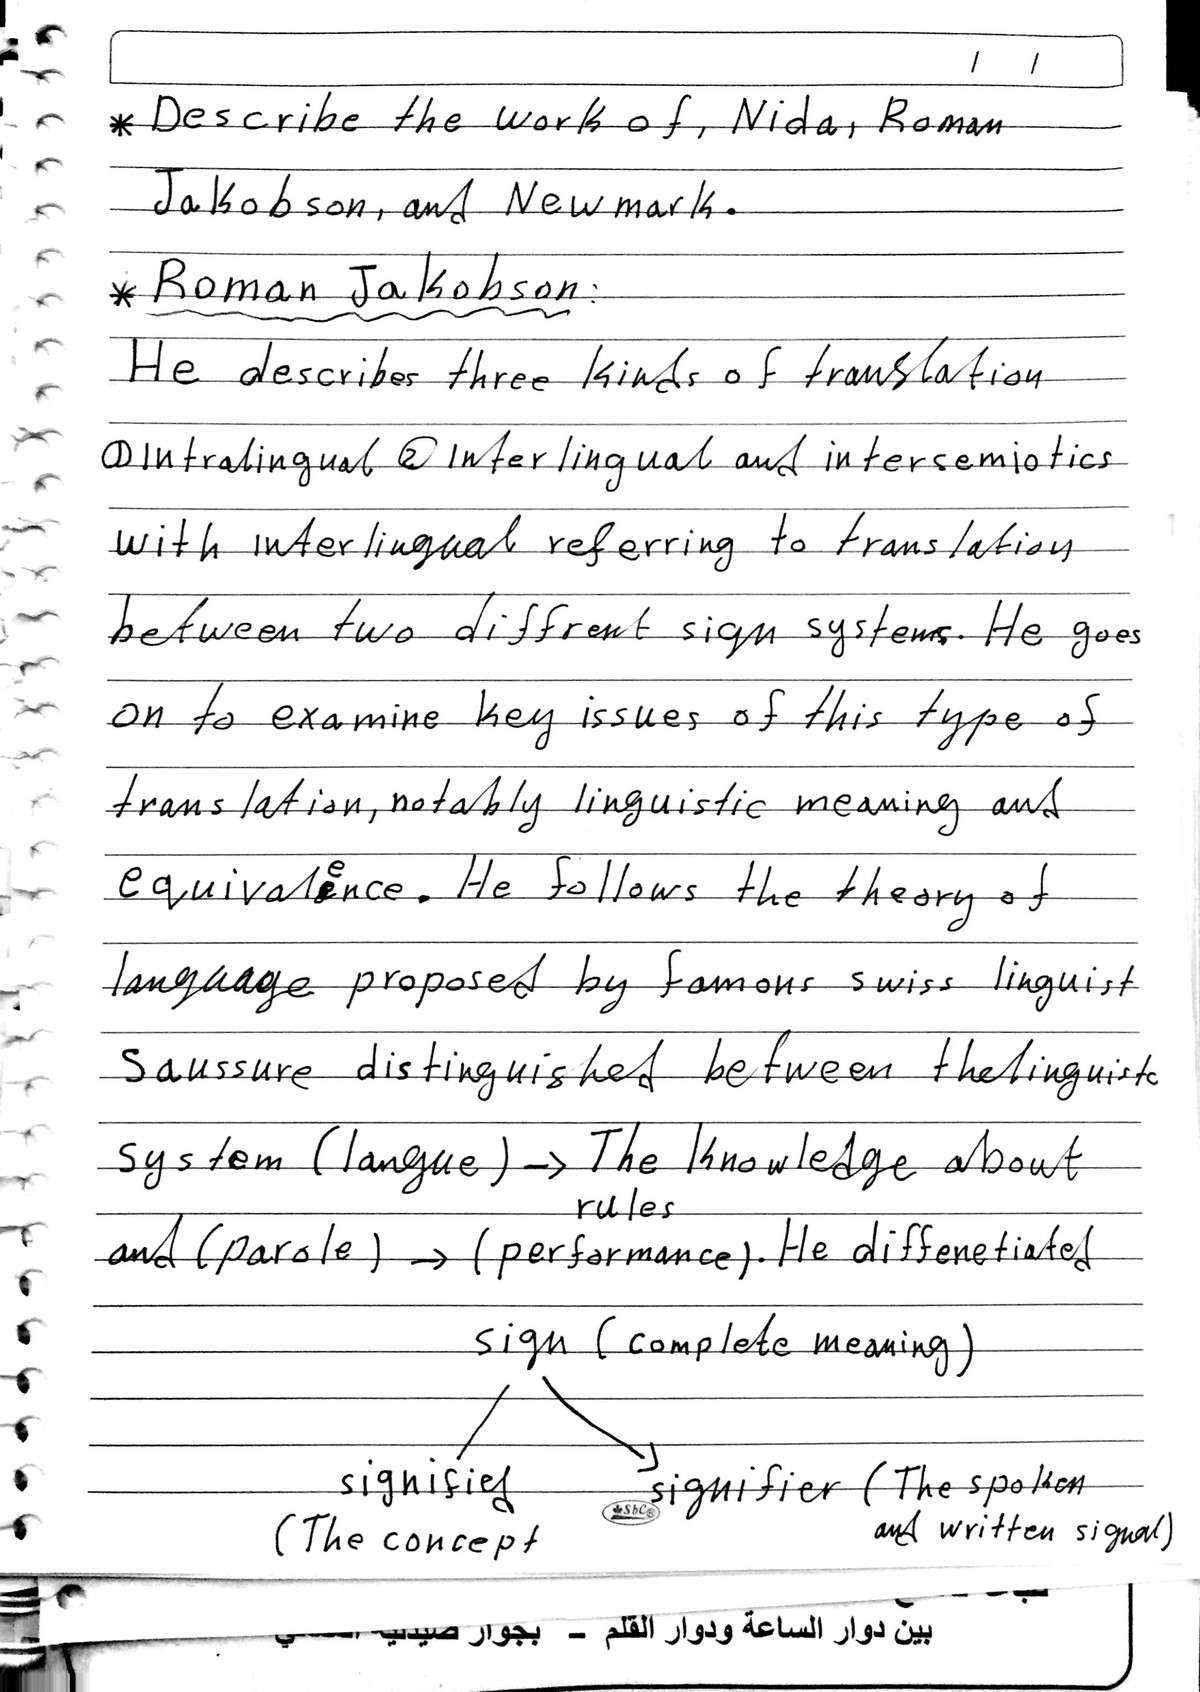 / /
* Describe the work of, Nida, Roman
Jakobson, and Newmark.
* Roman Jakobson:
He describes three kinds of translation
① Intralingual ② Interlingual and intersemiotics
with interlingual referring to translation
between two diffrent sign systems. He goes
on to examine key issues of this type of
translation, notably linguistic meaning and
equivalence. He follows the theory of
language proposed by famous swiss linguist
Saussure distinguished between the linguistc
system (langue) → The knowledge about
rules
and (parole) → (performance). He diffenetiated
sign (complete meaning)
signified signifier (The spoken
(The concept and written signal)
SbC
بين دوار الساعة ودوار القلم - بجوار صيدلية